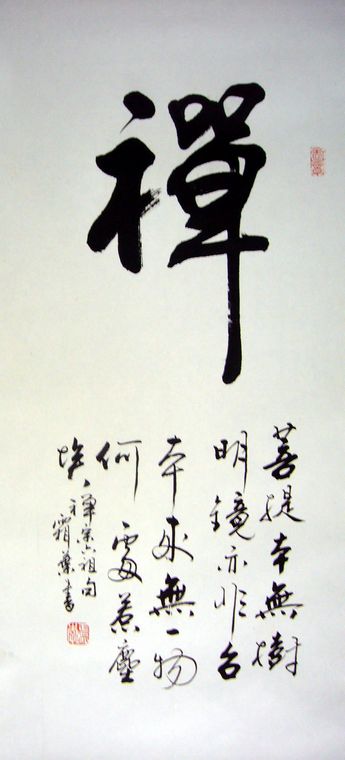 禪
菩提本無樹
明鏡亦非台
本來無一物
何處惹塵
埃禪宗六祖句
霜葉書